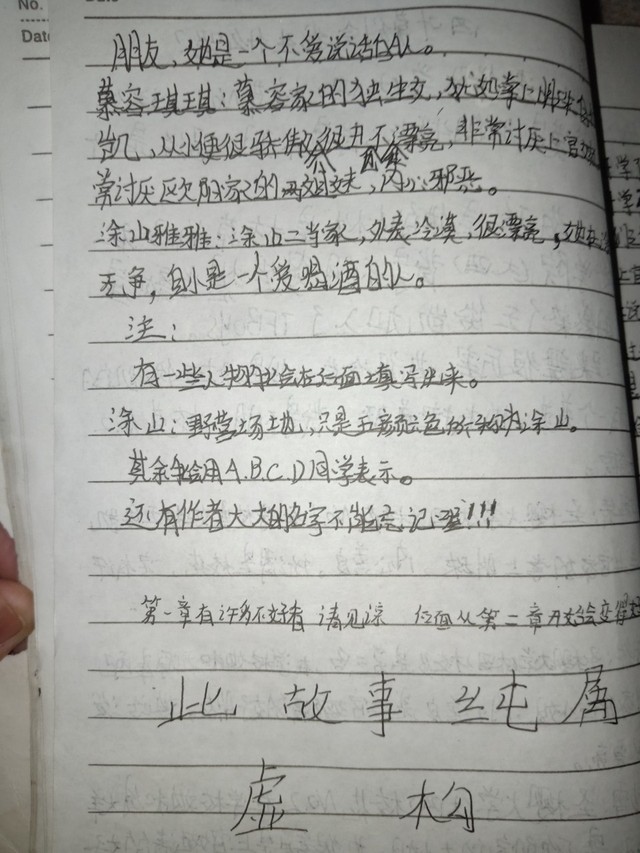 No.
Date
朋友,她是一个不爱说话的人。
慕容琪琪:慕容家的独生女,犹如掌上明珠
凯,从小便很骄傲,很不漂亮,非常讨厌上官
常讨厌欧阳家的两姐妹,内心邪恶。
涂山雅雅:涂山二当家,外表冷漠,很漂亮,她
无争,自小是一个爱喝酒的人。
注:
有一些人物也会在后面填写出来。
涂山:野营场地,只是五颜六色所称为涂山。
其余争给用A.B.C.D同学表示。
还有作者大大的名字不能忘记喔!!!
第一章有许多不好看 请见凉 后面从第二章开始会变得
此 故 事 纯 属
虚 构